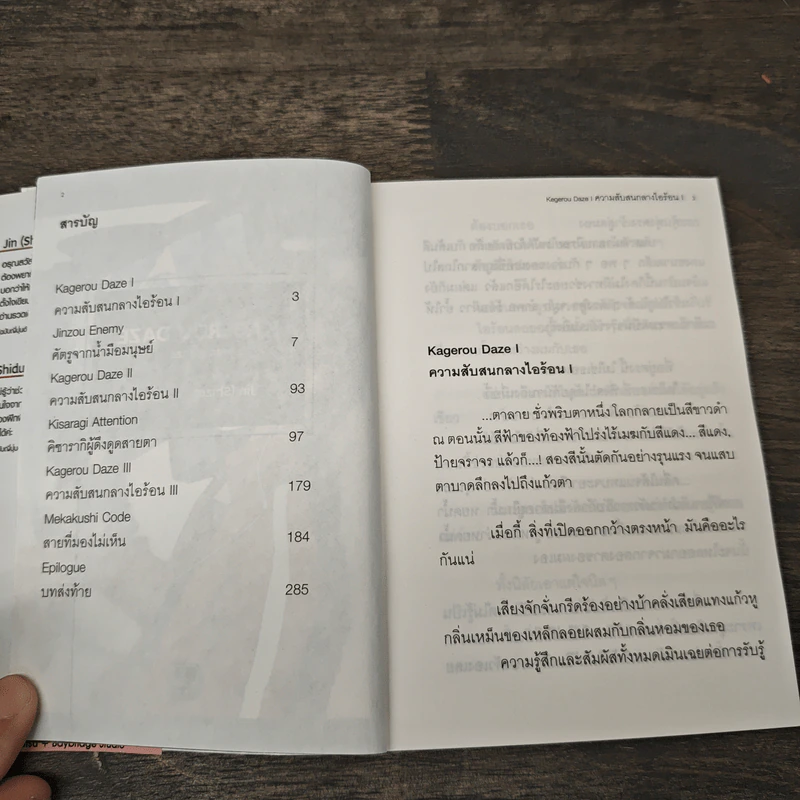 Jin
2
สารบัญ
Kagerou Daze I
ความสับสนกลางไอร้อน I 3
Jinzou Enemy
ศัตรูจากน้ำมือมนุษย์ 7
Kagerou Daze II
ความสับสนกลางไอร้อน II 93
Kisaragi Attention
คิซารากิผู้ดึงดูดสายตา 97
Kagerou Daze III
ความสับสนกลางไอร้อน III 179
Mekakushi Code
สายที่มองไม่เห็น 184
Epilogue
บทส่งท้าย 285
Kagerou Daze I ความสับสนกลางไอร้อน I
Kagerou Daze I
ความสับสนกลางไอร้อน I
...ตาลาย ชั่วพริบตาหนึ่ง โลกกลายเป็นสีขาวดำ
ณ ตอนนั้น สีฟ้าของท้องฟ้าโปร่งไร้เมฆกับสีแดง... สีแดง,
ป้ายจราจร แล้วก็...! สองสีนั้นตัดกันอย่างรุนแรง จนแสบ
ตาบาดลึกลงไปถึงแก้วตา
เมื่อกี้ สิ่งที่เปิดออกกว้างตรงหน้า มันคืออะไร
กันแน่
เสียงจักจั่นกรีดร้องอย่างบ้าคลั่งเสียดแทงแก้วหู
กลิ่นเหม็นของเหล็กลอยผสมกับกลิ่นหอมของเธอ
ความรู้สึกและสัมผัสทั้งหมดเมินเฉยต่อการรับรู้